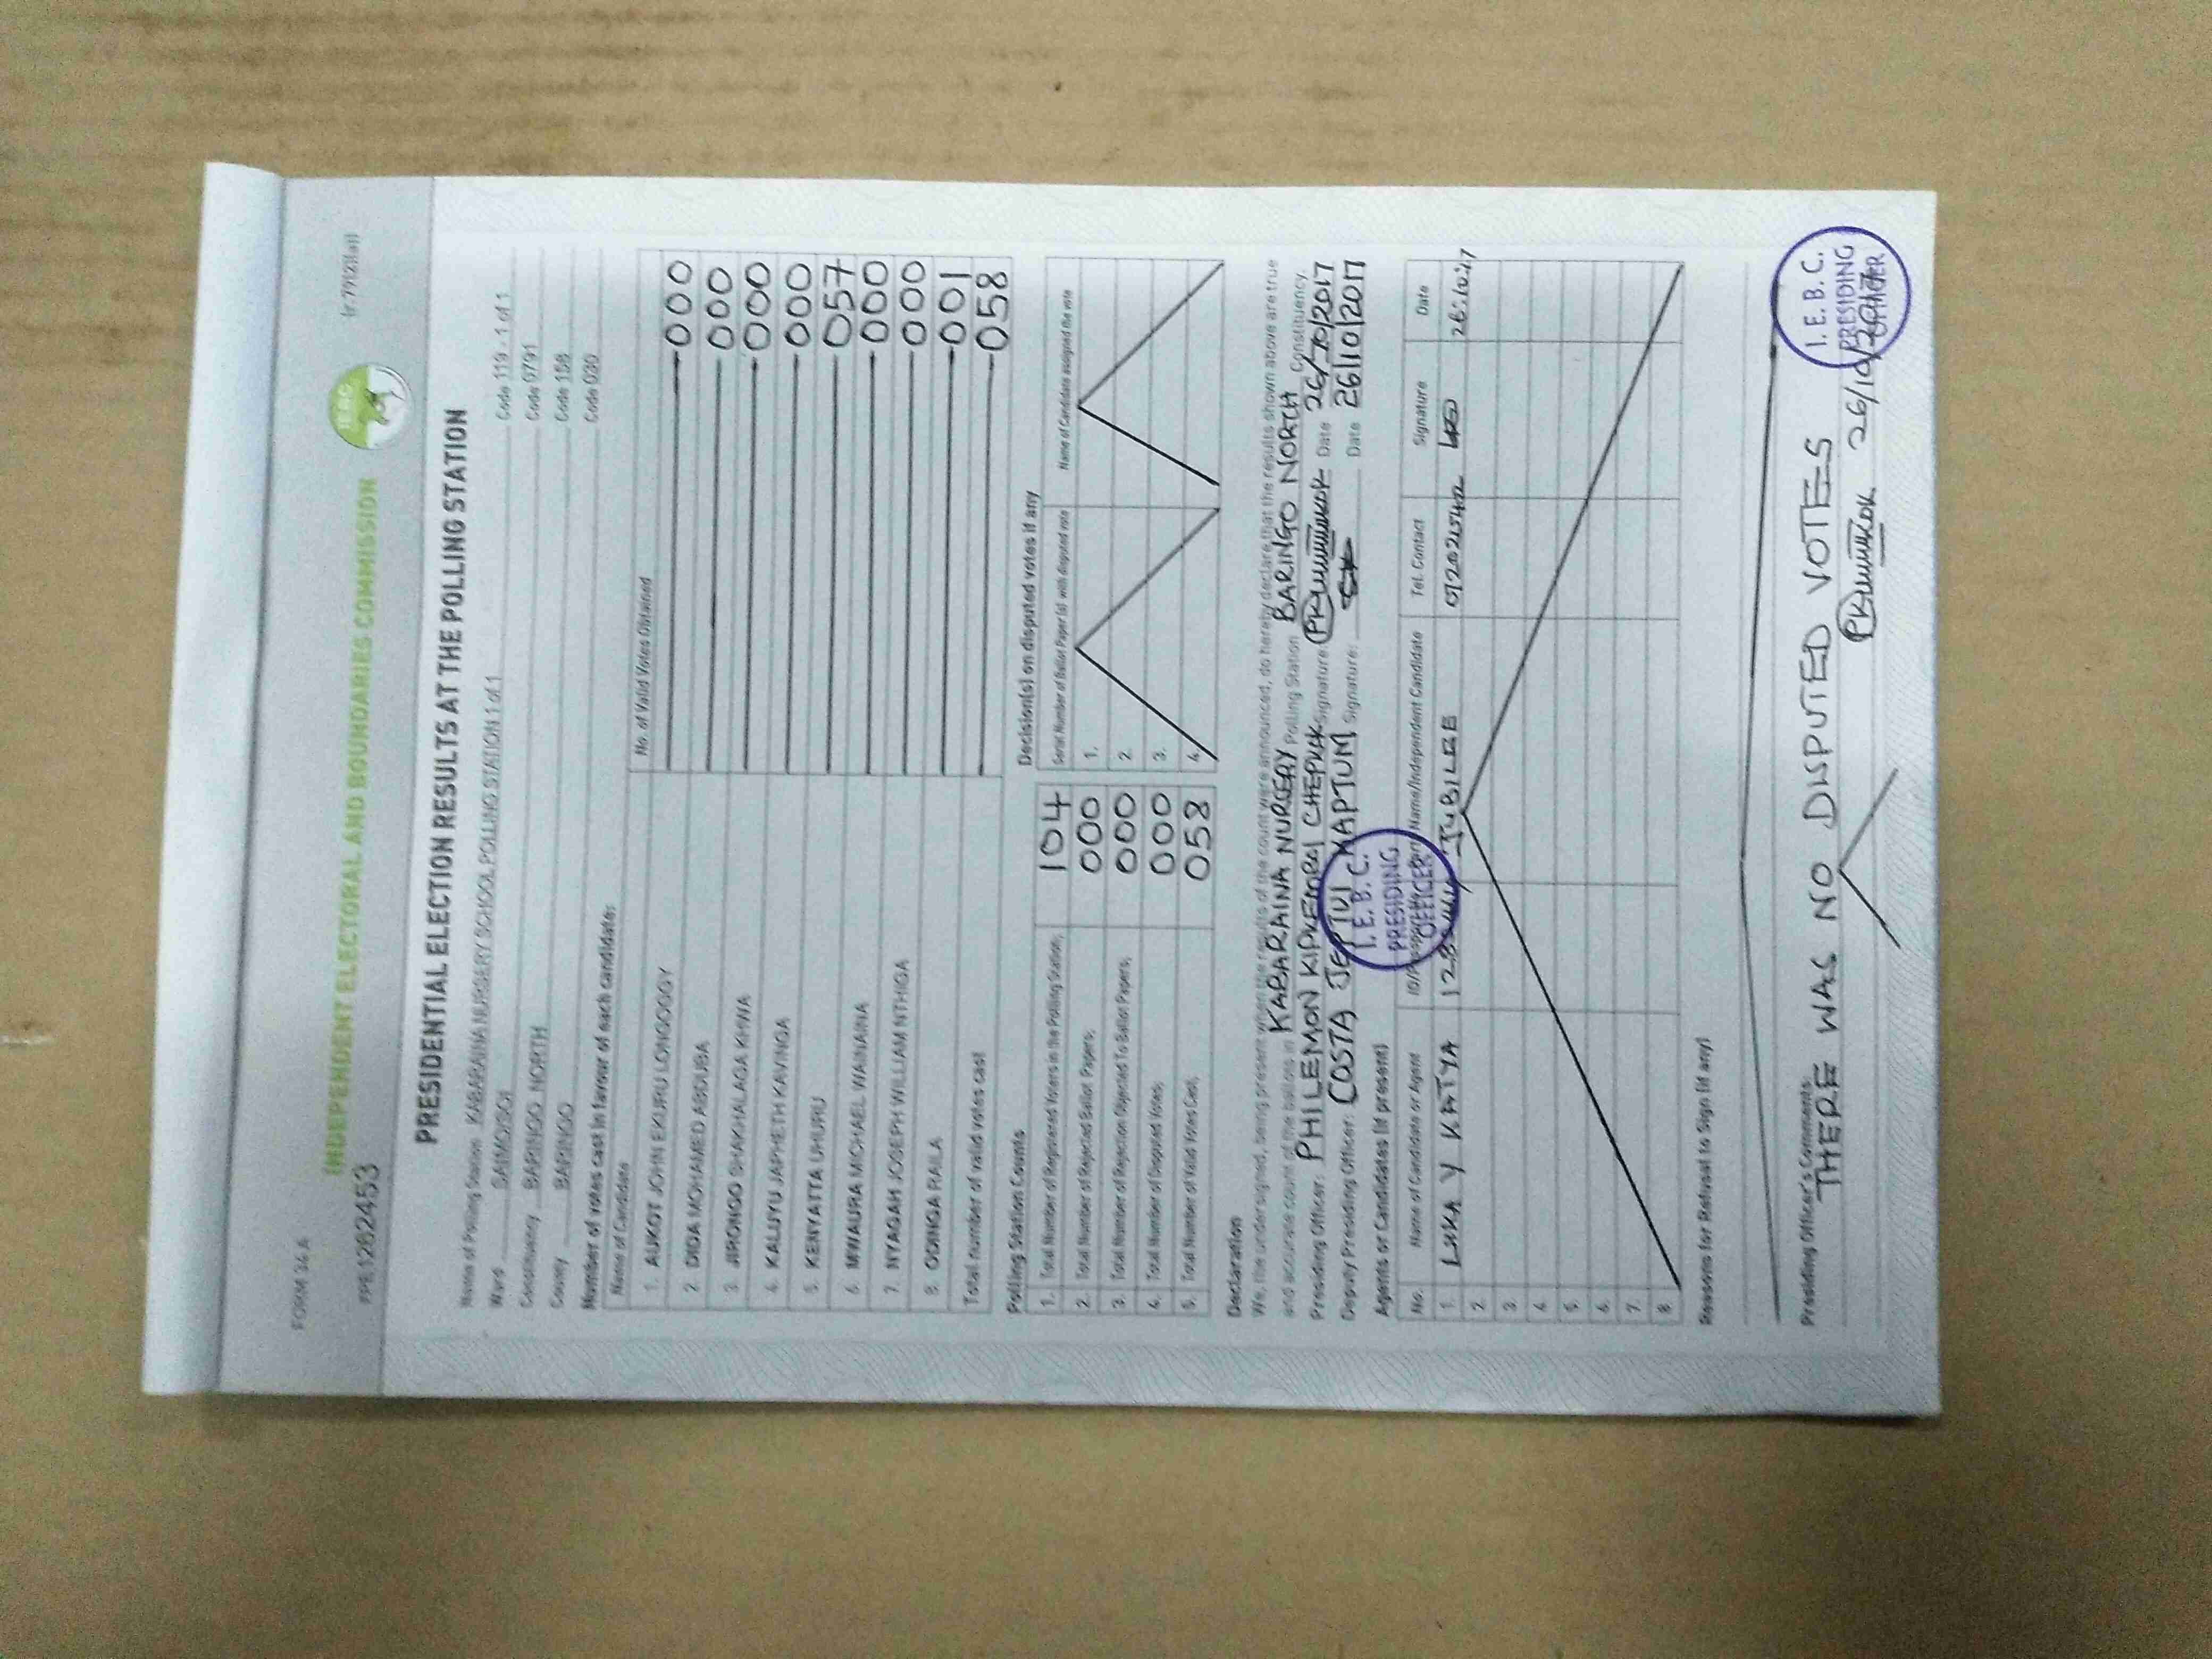 FORM 34 A
INDEPENDENT ELECTORAL AND BOUNDARIES COMMISSION
IEBC
PRESIDENTIAL ELECTION RESULTS AT THE POLLING STATION
Name of Polling Station KABARAINA NURSERY SCHOOL POLLING STATION 1 of 1 Code 119 - 1 of 1
Ward SAIMO/SOI Code 0791
Constituency BARINGO NORTH Code 158
County BARINGO Code 030
Number of votes cast in favour of each candidate:
Name of Candidate No. of Valid Votes Obtained
1. AUKOT JOHN EKURU LONGOGGY 000
2. DIDA MOHAMED ABDUBA 000
3. JIRONGO SHAKHALAGA KHWA 000
4. KALUYU JAPHETH KAVINGA 000
5. KENYATTA UHURU 057
6. MWAURA MICHAEL WAINAINA 000
7. NYAGAH JOSEPH WILLIAM NTHIGA 000
8. ODINGA RAILA 001
Total number of valid votes cast 058
Polling Station Counts
1. Total Number of Registered Voters in the Polling Station; 104
2. Total Number of Rejected Ballot Papers; 000
3. Total Number of Rejection Objected To Ballot Papers; 000
4. Total Number of Disputed Votes; 000
5. Total Number of Valid Votes Cast; 058
Decision(s) on disputed votes if any
Serial Number of Ballot Paper (s) with disputed vote Name of Candidate assigned the vote
1.
2.
3.
4.
Declaration
We, the undersigned, being present when the results of the count were announced, do hereby declare that the results shown above are true
and accurate count of the ballots in KABARAINA NURSERY Polling Station BARINGO NORTH Constituency.
Presiding Officer: PHILEMON KIPLEMBOI Signature: Date 26/10/2017
Deputy Presiding Officer: COSTA JEPTUI KAPTUM Signature: Date 26/10/2017
Agents or Candidates (if present)
No. Name of Candidate or Agent ID/Passport No. Party Name/Independent Candidate Tel. Contact Signature Date
1. LUKA Y KATYA JUBILEE
2.
3.
4.
5.
6.
7.
8.
I. E. B. C.
PRESIDING
OFFICER
Reasons for Refusal to Sign (if any)
Presiding Officer's Comments:
THERE WAS NO DISPUTED VOTES
26/10/2017
I. E. B. C.
PRESIDING
OFFICER